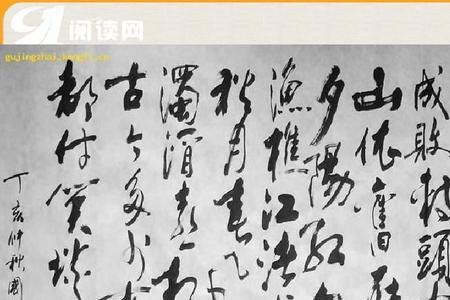 阅读网
gujingzhai.kongfz.cn
成敗轉頭
山依舊
夕陽紅
漁樵江渚
秋月春
濁酒
古今多少
都付笑談
丁亥仲秋國